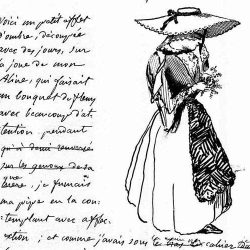 Voici un petit effet
d'ombre, découpée
avec des jours, sur
la joue de mon
Aline, qui faisait
un bouquet de fleurs
avec beaucoup d'at-
tention, pendant
sur les genoux de sa
que
je fumais
ma pipe en la con-
templant avec
; et comme j'avais sous les